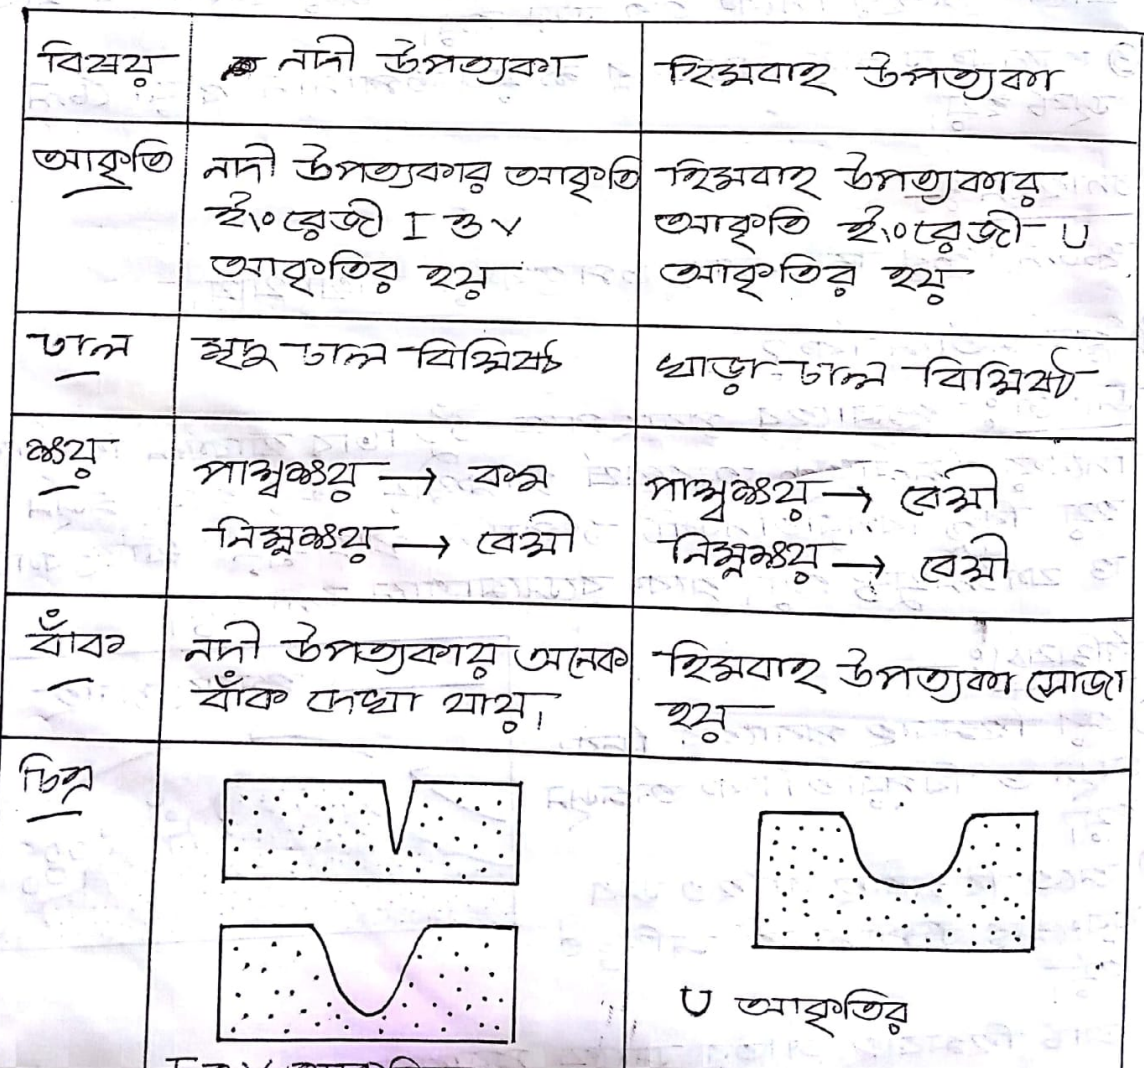 বিষয়
নদী উপত্যকা
হিমবাহ উপত্যকা
আকৃতি
নদী উপত্যকার আকৃতি
ইংরেজী I ও V
আকৃতির হয়
হিমবাহ উপত্যকার
আকৃতি ইংরেজী U
আকৃতির হয়
ঢাল
মৃদু ঢাল বিশিষ্ট
খাড়া ঢাল বিশিষ্ট
ক্ষয়
পার্শ্বক্ষয় → কম
নিম্নক্ষয় → বেশী
পার্শ্বক্ষয় → বেশী
নিম্নক্ষয় → বেশী
বাঁক
নদী উপত্যকায় অনেক
বাঁক দেখা যায়।
হিমবাহ উপত্যকা সোজা
হয়
চিত্র
U আকৃতির